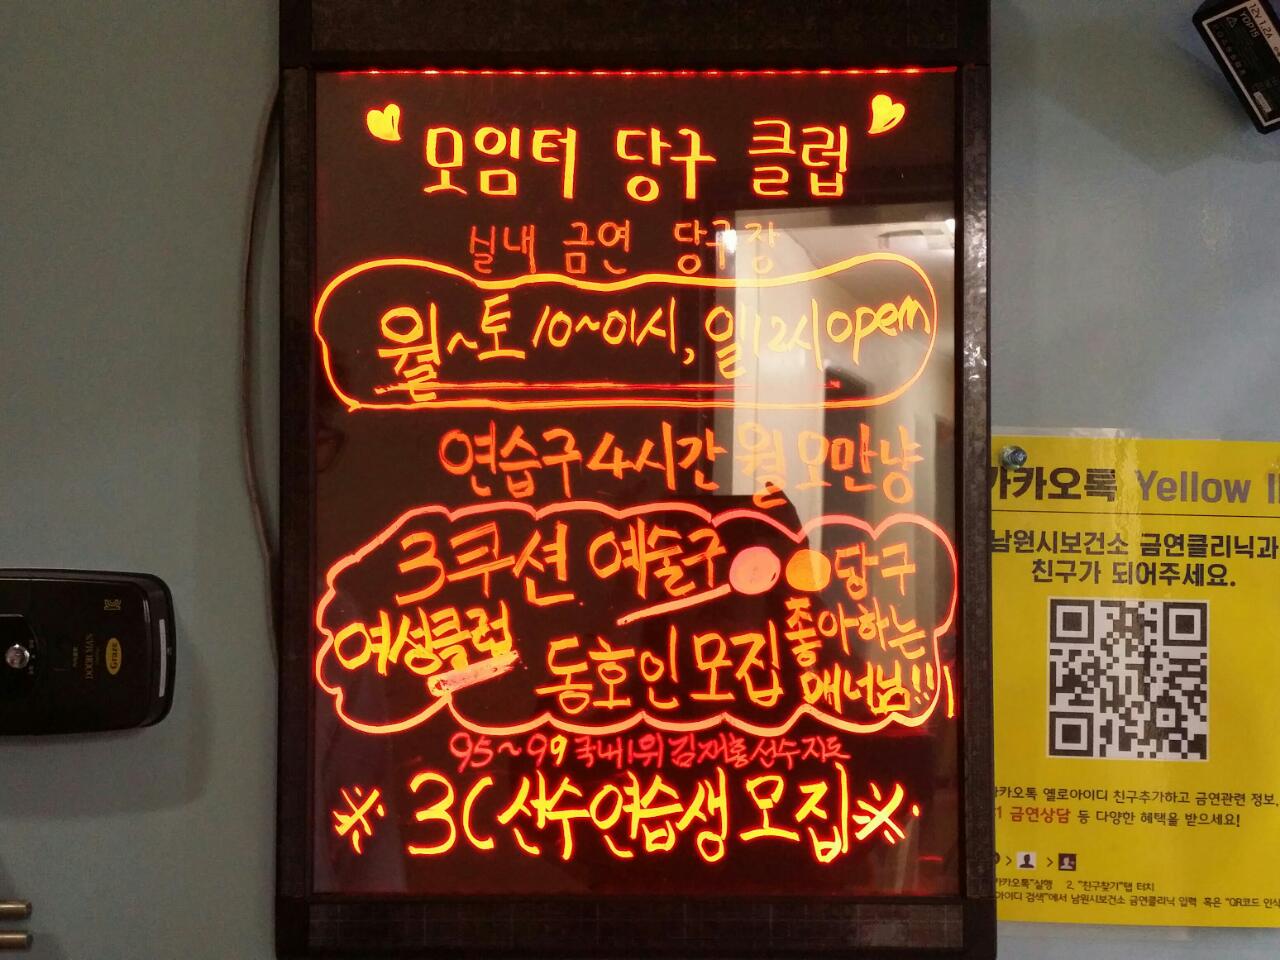 모임터 당구 클럽
실내 금연 당구장
월~토 10~01시, 일12시 open
연습구 4시간 월 오만냥
3쿠션 예술구
당구
좋아하는
매너님!!!
여성클럽
동호인 모집
95~99 국내1위 김재홍 선수지도
※ 3C 선수 연습생 모집 ※
12V 1.2A
카카오톡 Yellow
남원시보건소 금연클리닉과
친구가 되어주세요.
카카오톡 옐로아이디 친구추가하고 금연관련 정보,
1 금연상담 등 다양한 혜택을 받으세요!
> >
카카오톡"실행 2. "친구찾기"탭 터치
아이디 검색"에서 남원시보건소 금연클리닉 입력 혹은 "QR코드 인식